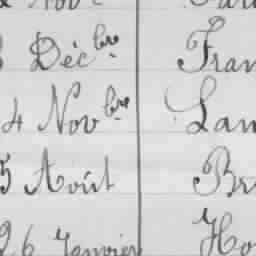 Déc bre Fran
4 Nov bre Lan
5 Août Br
26 Janvier Ho